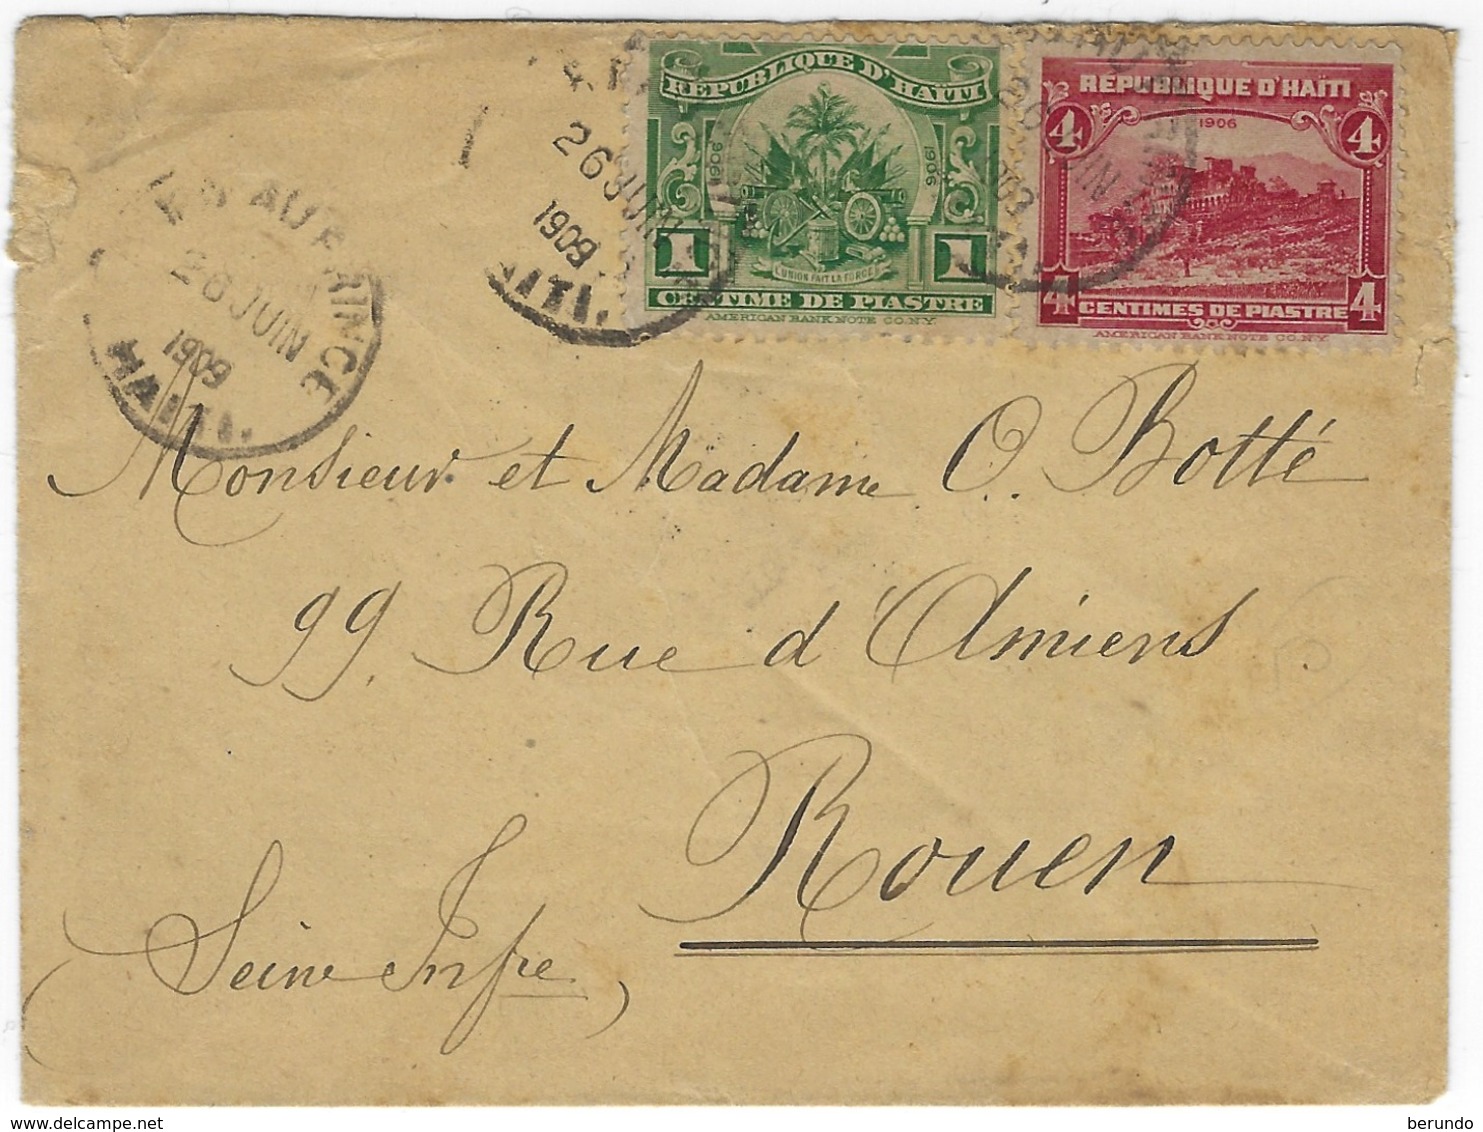 RÉPUBLIQUE D'HAÏTI
1906 1906
L'UNION FAIT LA FORCE
1 1
CENTIME DE PIASTRE
AMERICAN BANK NOTE CO. N.Y.
RÉPUBLIQUE D'HAÏTI
4 1906 4
4 CENTIMES DE PIASTRE 4
AMERICAN BANK NOTE CO. N.Y.
26 JUIN
1909
AU PRINCE
26 JUIN
1909
HAITI.
Monsieur et Madame O. Botté
99. Rue d'Amiens
Rouen
(Seine Infre)
berundo